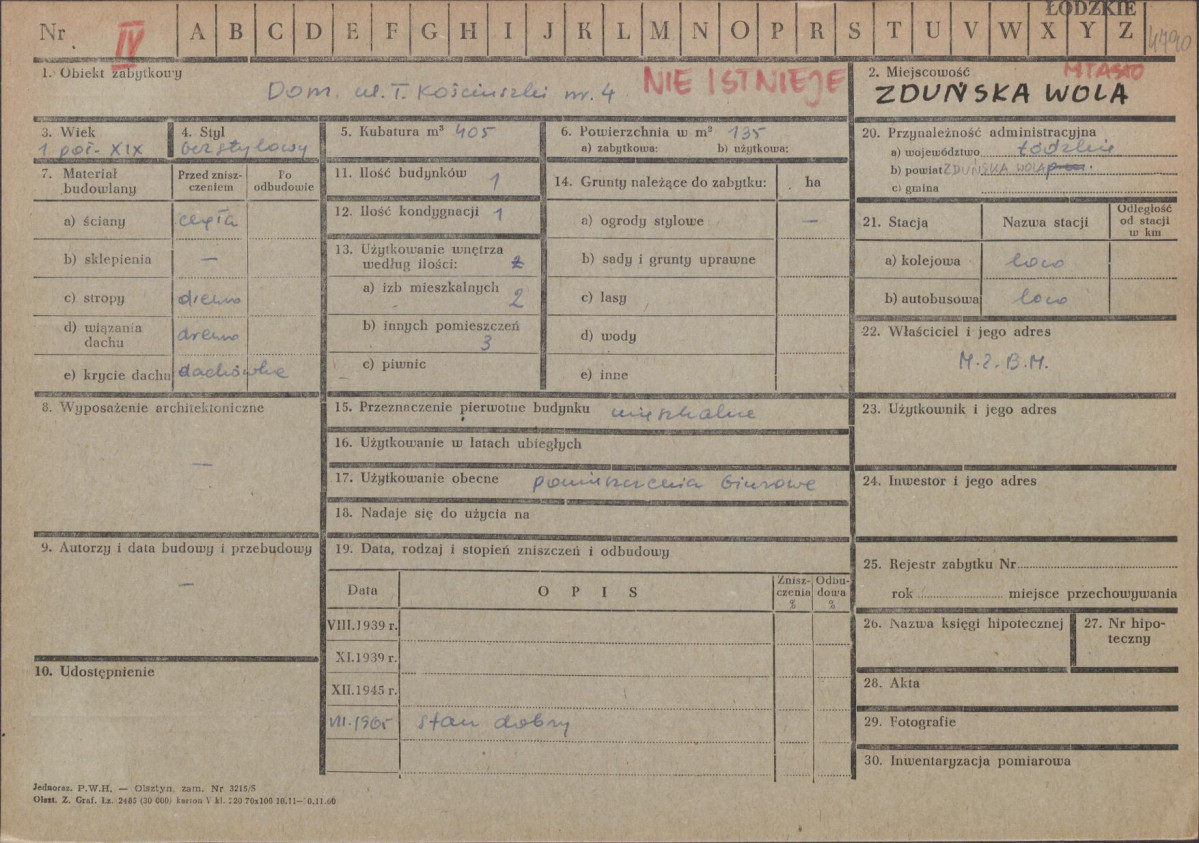 ŁÓDZKIE
Nr IV A B C D E F G H I J K L M N O P R S T U V W X Y Z 4790
1. Obiekt zabytkowy
Dom. ul. T. Kościuszki nr. 4
NIE ISTNIEJE
2. Miejscowość MIASTO
ZDUŃSKA WOLA
3. Wiek
1 poł. XIX
4. Styl
bezstylowy
5. Kubatura m³ 405
6. Powierzchnia w m² 135
a) zabytkowa: b) użytkowa:
7. Materiał budowlany
Przed zniszczeniem
Po odbudowie
a) ściany cegła
b) sklepienia —
c) stropy drewno
d) wiązania dachu drewno
e) krycie dachu dachówka
8. Wyposażenie architektoniczne
—
9. Autorzy i data budowy i przebudowy
—
10. Udostępnienie
11. Ilość budynków 1
12. Ilość kondygnacji 1
13. Użytkowanie wnętrza
według ilości:
a) izb mieszkalnych 2
b) innych pomieszczeń
3
c) piwnic
14. Grunty należące do zabytku: ha
a) ogrody stylowe —
b) sady i grunty uprawne
c) lasy
d) wody
e) inne
15. Przeznaczenie pierwotne budynku mieszkalne
16. Użytkowanie w latach ubiegłych
17. Użytkowanie obecne pomieszczenia biurowe
18. Nadaje się do użycia na
19. Data, rodzaj i stopień zniszczeń i odbudowy
Data OPIS Zniszczenia % Odbudowa %
VIII.1939 r.
XI.1939 r.
XII.1945 r.
VII.1965 stan dobry
20. Przynależność administracyjna
a) województwo Łódzkie
b) powiat ZDUŃSKA WOLA
c) gmina
21. Stacja Nazwa stacji Odległość od stacji w km
a) kolejowa loco
b) autobusowa loco
22. Właściciel i jego adres
M.Z.B.M.
23. Użytkownik i jego adres
24. Inwestor i jego adres
25. Rejestr zabytku Nr
rok miejsce przechowywania
26. Nazwa księgi hipotecznej
27. Nr hipoteczny
28. Akta
29. Fotografie
30. Inwentaryzacja pomiarowa
Jednoraz. P.W.H. — Olsztyn, zam. Nr 3215/S
Olszt. Z. Graf. Lz. 2485 (30 000) karton V kl. 220 70x100 10.11—10.11.60